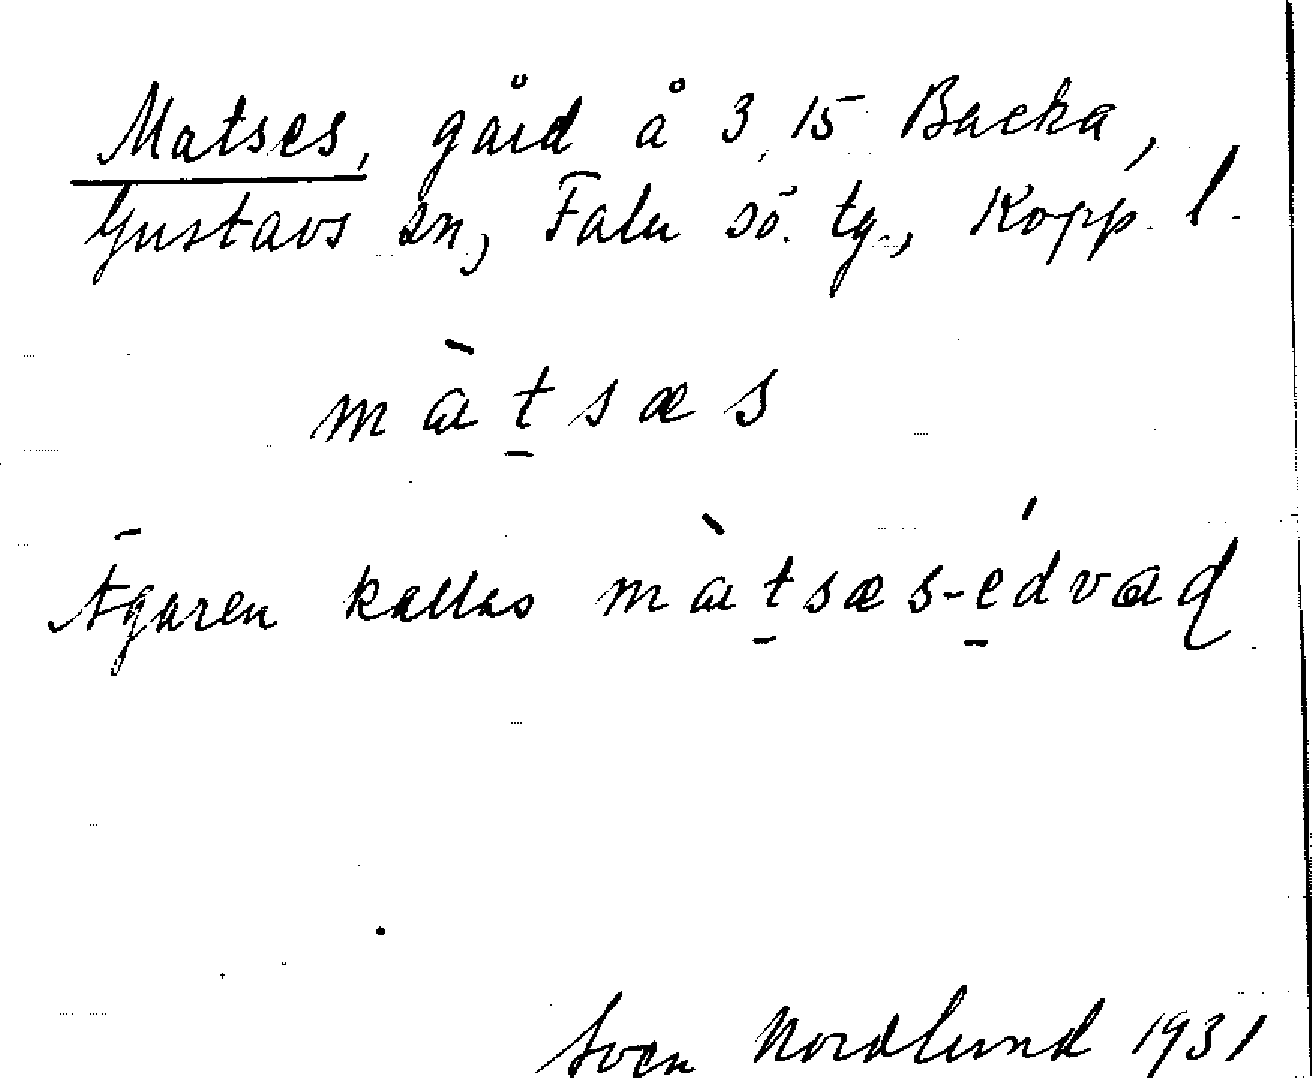 Matses, gård å 3, 15 Backa,
Gustavs sn, Falu sö. tg., Kopp. l.
màt̠sæs
Ägaren kallas màt̠sæs-é̠dvaɖ
Sven Nordlund 1931